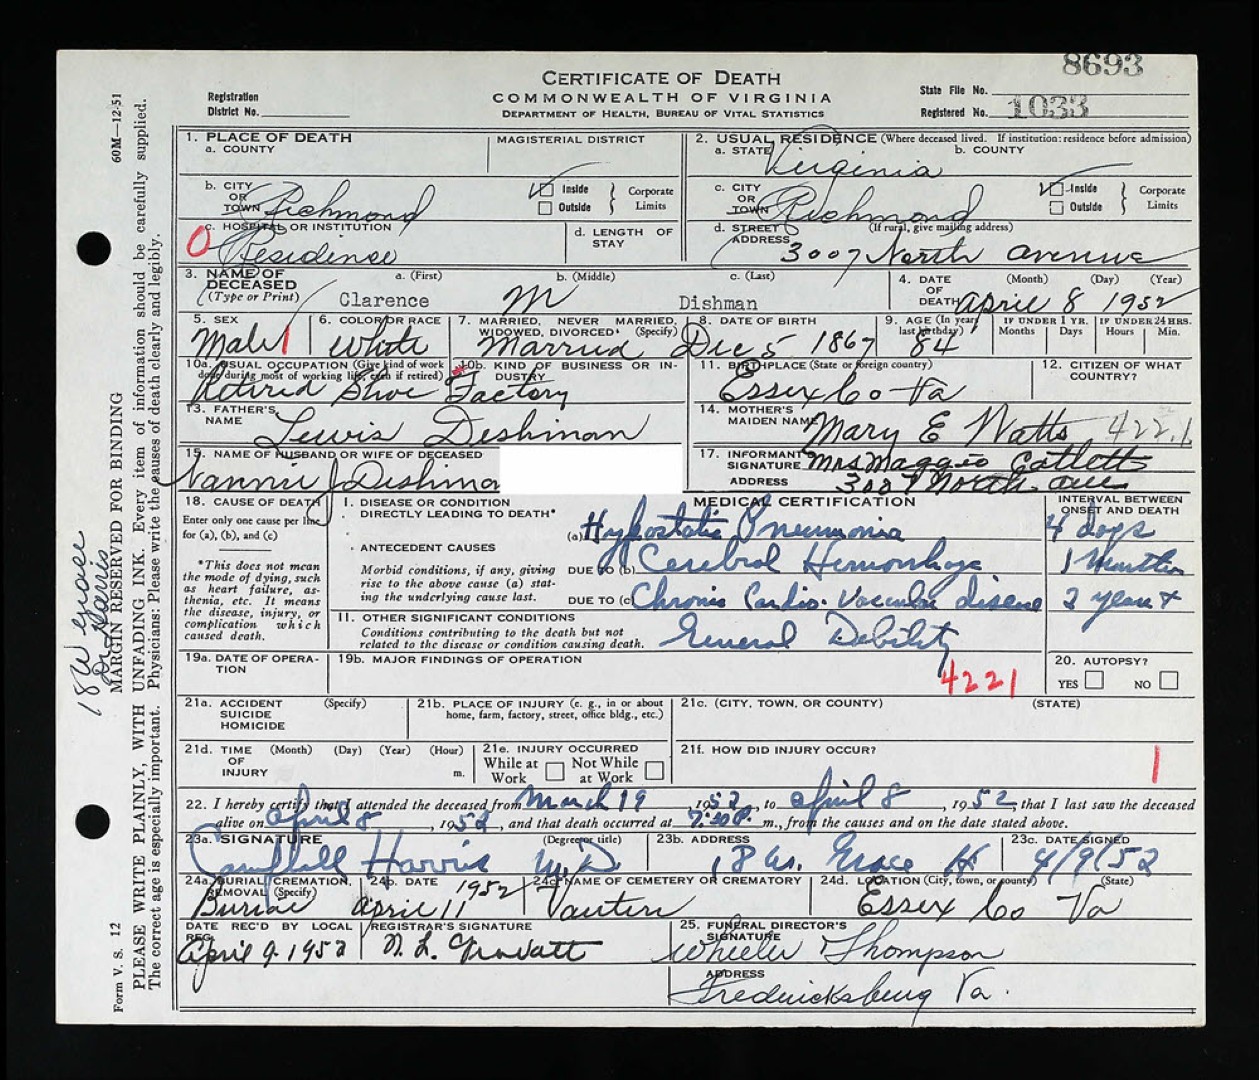 8693
CERTIFICATE OF DEATH
COMMONWEALTH OF VIRGINIA
DEPARTMENT OF HEALTH, BUREAU OF VITAL STATISTICS
Registration
District No.
State File No.
Registered No. 1033
1. PLACE OF DEATH
a. COUNTY
MAGISTERIAL DISTRICT
2. USUAL RESIDENCE (Where deceased lived. If institution: residence before admission)
a. STATE Virginia b. COUNTY
b. CITY OR TOWN Richmond
Inside
Outside
Corporate Limits
c. CITY OR TOWN Richmond
Inside
Outside
Corporate Limits
c. HOSPITAL OR INSTITUTION
O Residence
d. LENGTH OF STAY
d. STREET ADDRESS (If rural, give mailing address)
3007 North avenue
3. NAME OF DECEASED (Type or Print)
a. (First) b. (Middle) c. (Last)
Clarence M Dishman
4. DATE OF DEATH (Month) (Day) (Year)
April 8 1952
5. SEX
Male 1
6. COLOR OR RACE
White
7. MARRIED, NEVER MARRIED, WIDOWED, DIVORCED (Specify)
Married
8. DATE OF BIRTH
Dec 5 1867
9. AGE (In years last birthday)
84
IF UNDER 1 YR.
Months Days
IF UNDER 24 HRS.
Hours Min.
10a. USUAL OCCUPATION (Give kind of work done during most of working life, even if retired)
Retired Shoe Factory
10b. KIND OF BUSINESS OR INDUSTRY
11. BIRTHPLACE (State or foreign country)
Essex Co Va
12. CITIZEN OF WHAT COUNTRY?
13. FATHER'S NAME
Lewis Dishman
14. MOTHER'S MAIDEN NAME
Mary E Watts 422.1
15. NAME OF HUSBAND OR WIFE OF DECEASED
Nannie J Dishma
17. INFORMANT
SIGNATURE Mrs Maggie Catlett
ADDRESS 3007 North ave
18. CAUSE OF DEATH
Enter only one cause per line for (a), (b), and (c)
*This does not mean the mode of dying, such as heart failure, asthenia, etc. It means the disease, injury, or complication which caused death.
I. DISEASE OR CONDITION DIRECTLY LEADING TO DEATH*
MEDICAL CERTIFICATION
INTERVAL BETWEEN ONSET AND DEATH
(a) Hypostatic Pneumonia 4 days
ANTECEDENT CAUSES
Morbid conditions, if any, giving rise to the above cause (a) stating the underlying cause last.
DUE TO (b) Cerebral Hemorrhage 1 Month
DUE TO (c) Chronic Cardio-Vascular disease 2 years +
II. OTHER SIGNIFICANT CONDITIONS
Conditions contributing to the death but not related to the disease or condition causing death.
General Debility
19a. DATE OF OPERATION
19b. MAJOR FINDINGS OF OPERATION
4221
20. AUTOPSY?
YES NO
21a. ACCIDENT SUICIDE HOMICIDE (Specify)
21b. PLACE OF INJURY (e. g., in or about home, farm, factory, street, office bldg., etc.)
21c. (CITY, TOWN, OR COUNTY) (STATE)
21d. TIME OF INJURY (Month) (Day) (Year) (Hour) m.
21e. INJURY OCCURRED
While at Work Not While at Work
21f. HOW DID INJURY OCCUR?
1
22. I hereby certify that I attended the deceased from March 19, 1952, to April 8, 1952, that I last saw the deceased
alive on April 8, 1952, and that death occurred at 7:30 P. m., from the causes and on the date stated above.
23a. SIGNATURE (Degree or title)
Campbell Harris M.D
23b. ADDRESS
18 W. Grace St
23c. DATE SIGNED
4/9/52
24a. BURIAL, CREMATION, REMOVAL (Specify)
Burial
24b. DATE 1952
April 11
24c. NAME OF CEMETERY OR CREMATORY
24d. LOCATION (City, town, or county) (State)
Essex Co Va
DATE REC'D BY LOCAL REG.
April 9. 1952
REGISTRAR'S SIGNATURE
25. FUNERAL DIRECTOR'S
SIGNATURE Wheeler Thompson
ADDRESS
Fredericksburg Va.
60M—12-51
MARGIN RESERVED FOR BINDING
PLEASE WRITE PLAINLY, WITH UNFADING INK. Every item of information should be carefully supplied.
The correct age is especially important. Physicians: Please write the causes of death clearly and legibly.
Form V. S. 12
18 W Grace
Dr Harris